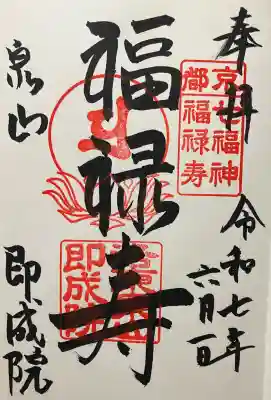 奉拝
京七福神
都福禄寿
令和七年
六月一日
福禄寿
泉山
即成院
即成院